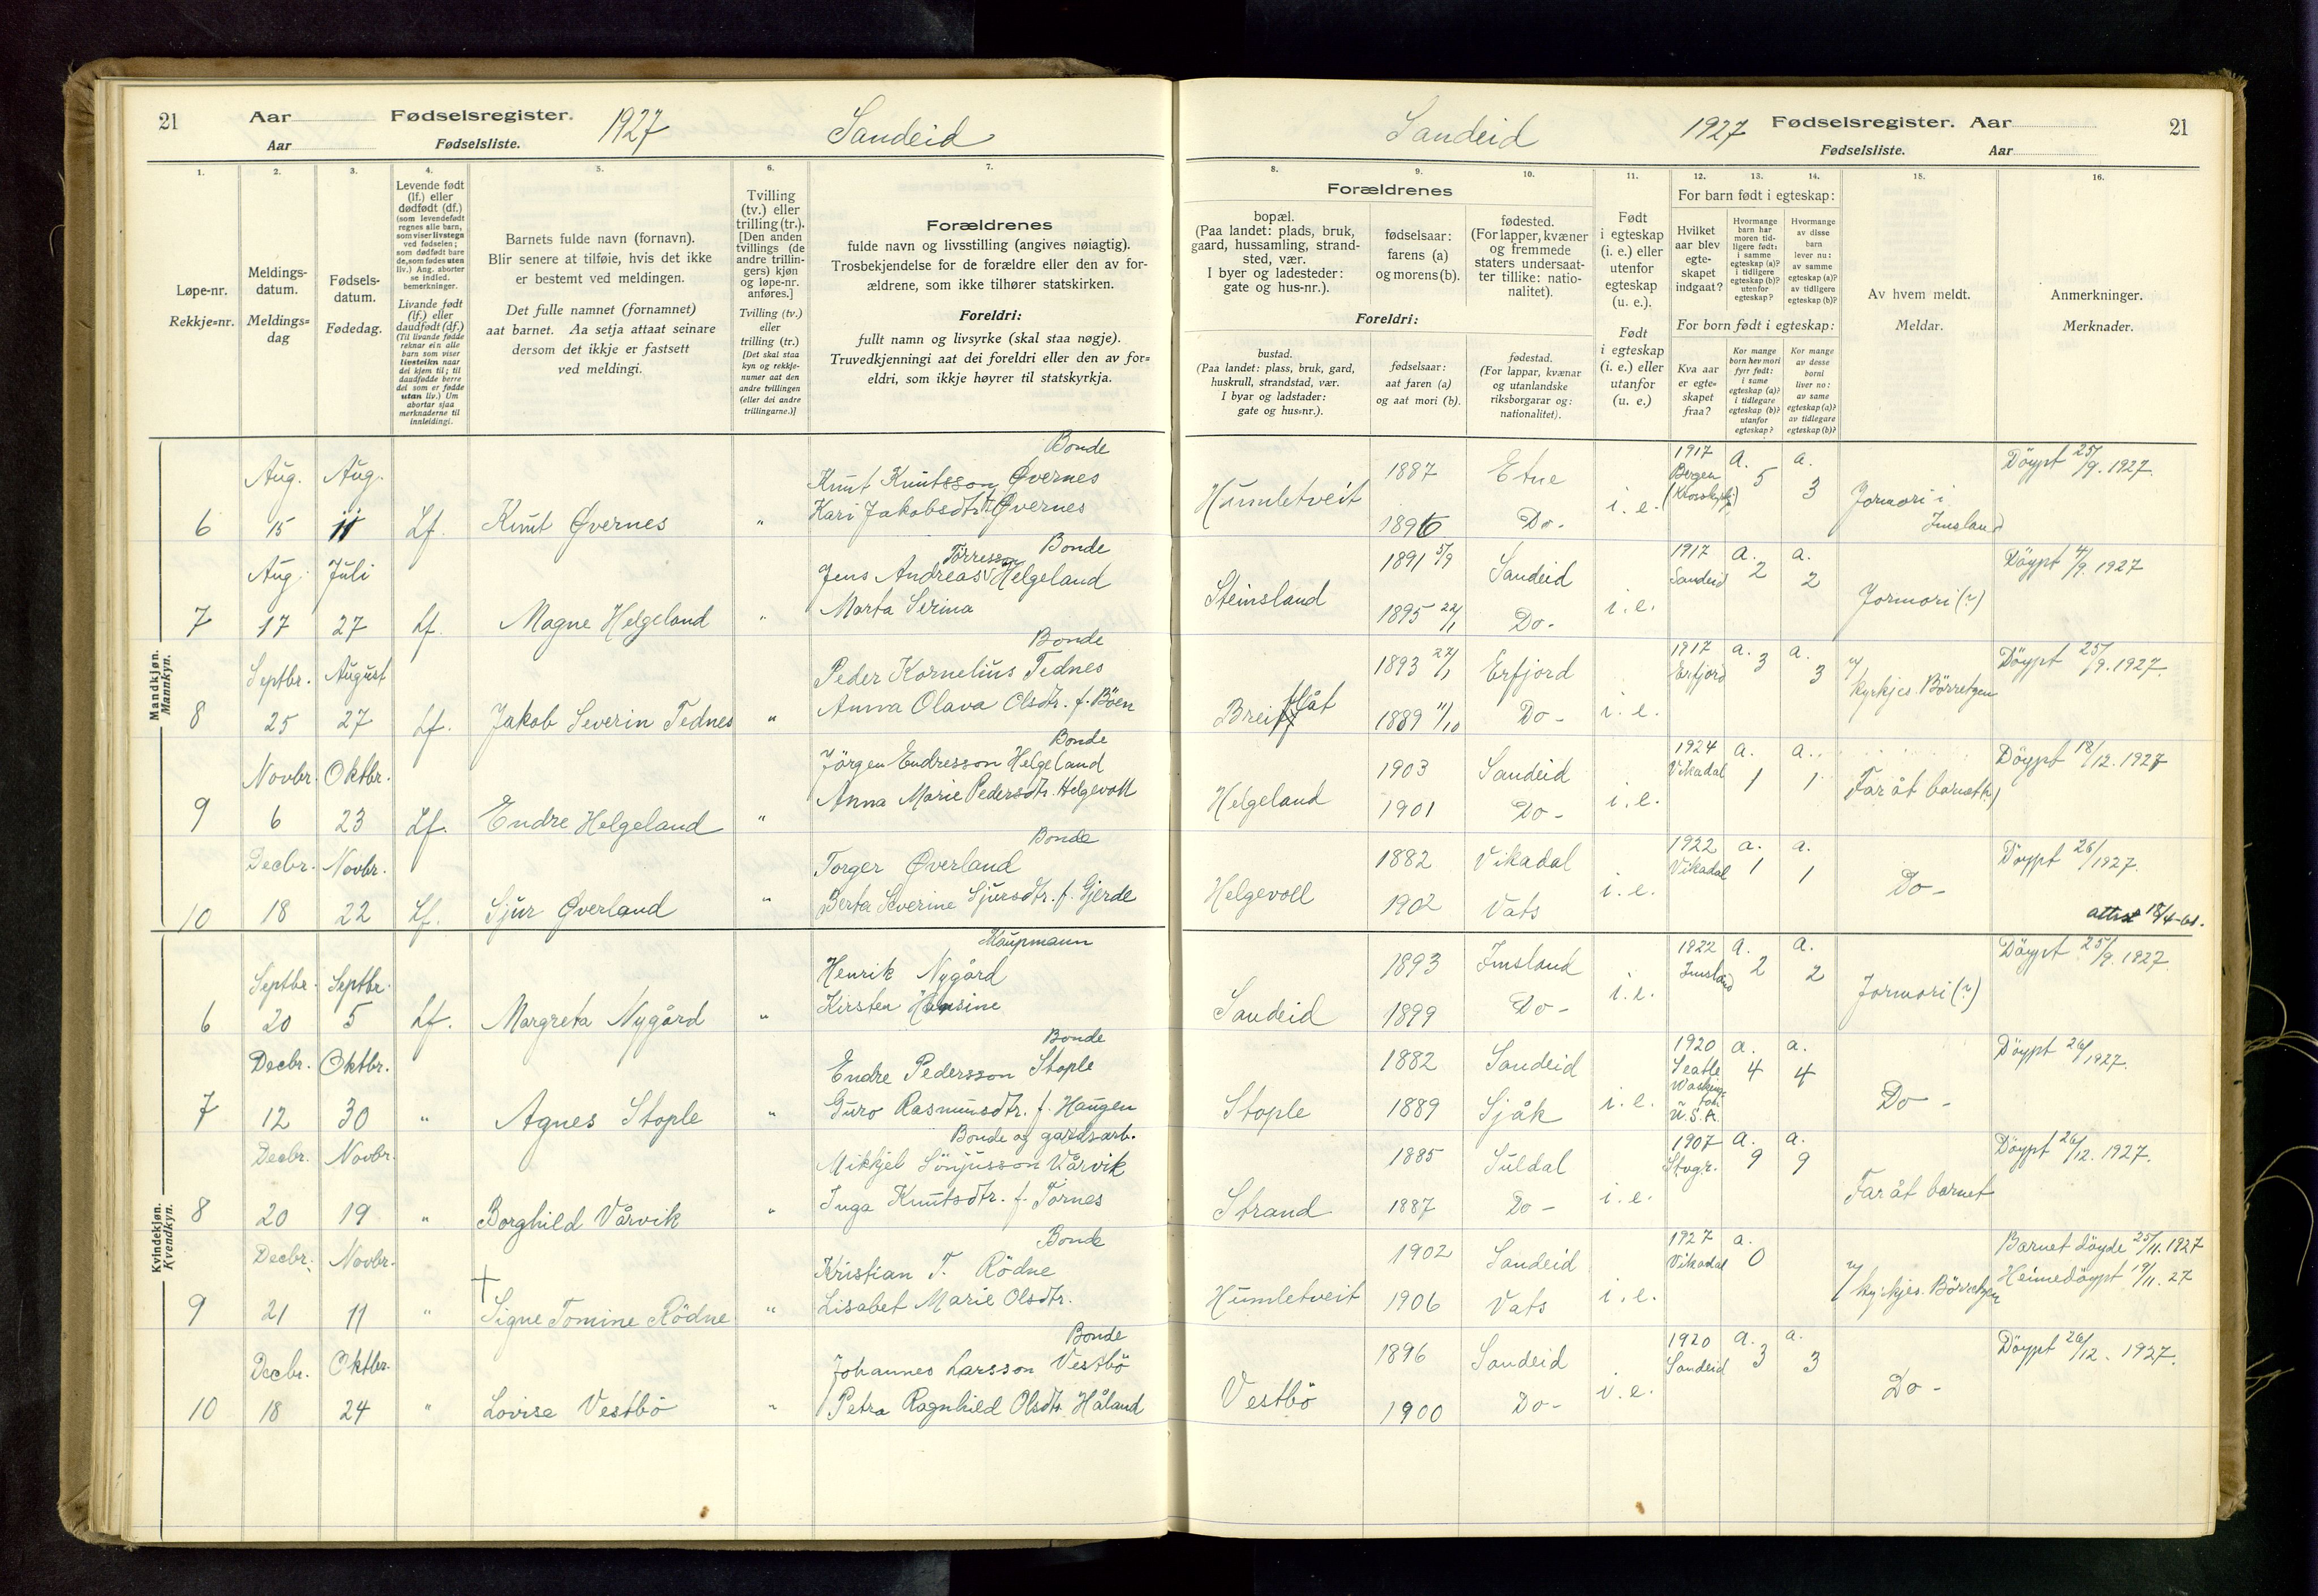 21 Aar Fødselsregister. 1927 Sandeid
Aar Fødselsliste.
1. 2. 3. 4. 5. 6. 7.
Løpe-nr.
Rekkje=nr.
Meldings-
datum.
Meldings=
dag
Fødsels-
datum.
Fødedag.
Levende født
(lf.) eller
dødfødt (df.)
(som levendefødt
regnes alle barn,
som viser livstegn
ved fødselen;
som dødfødt bare
de, som fødes uten
liv.) Ang. aborter
se indled.
bemerkninger.
Livande født
(lf.) eller
daudfødt (df.)
(Til livande fødde
reknar ein alle
barn som viser
livsteikn naar
dei kjem til; til
daudfødde berre
dei som er fødde
utan liv.) Um
abortar sjaa
merknaderne til
innleidingi.
Barnets fulde navn (fornavn).
Blir senere at tilføie, hvis det ikke
er bestemt ved meldingen.
Det fulle namnet (fornamnet)
aat barnet. Aa setja attaat seinare
dersom det ikkje er fastsett
ved meldingi.
Tvilling
(tv.) eller
trilling (tr.).
[Den anden
tvillings (de
andre trillin-
gers) kjøn
og løpe-nr.
anføres.]
Tvilling (tv.)
eller
trilling (tr.)
[Det skal staa
kyn og rekkje-
numer aat den
andre tvillingen
(eller dei andre
trillingarne.)]
Forældrenes
fulde navn og livsstilling (angives nøiagtig).
Trosbekjendelse for de forældre eller den av for-
ældrene, som ikke tilhører statskirken.
Foreldri:
fullt namn og livsyrke (skal staa nøgje).
Truvedkjenningi aat dei foreldri eller den av for=
eldri, som ikkje høyrer til statskyrkja.
Mandkjøn.
Mannkyn.
Bonde
Aug. Aug. Knut Knutsson Øvernes
6 15 11 Lf. Knut Øvernes " Kari Jakobsdtr. Øvernes
Bonde
Aug. Juli Jens Andreas Tørresson Helgeland
7 17 27 Lf. Magne Helgeland " Marta Serina
Bonde
Septbr. August Peder Kornelius Tednes
8 25 27 Lf. Jakob Severin Tednes " Anna Olava Olsdtr. f. Böen
Bonde
Novbr. Oktbr. Jörgen Endresson Helgeland
9 6 23 Lf. Endre Helgeland " Anna Marie Pedersdtr. Helgevoll
Bonde
Decbr. Novbr. Torger Øverland
10 18 22 Lf. Sjur Øverland " Berta Severine Sjursdtr. f. Gjerde
Kvindekjøn.
Kvendkyn.
Kaupmann
Septbr. Septbr. Henrik Nygård
6 20 5 Lf. Margreta Nygård " Kirsten Hansine
Bonde
Decbr. Oktbr. Endre Pedersson Stople
7 12 30 " Agnes Stople " Guro Rasmusdtr. f. Haugen
Bonde og gardsarb.
Decbr. Novbr. Mikkjel Sönjusson Vårvik
8 20 19 " Borghild Vårvik " Inga Knutsdtr. f. Törnes
Bonde
Decbr. Novbr. Kristian T. Rödne
9 21 11 " Signe Tomine Rödne " Lisabet Marie Olsdtr.
Bonde
Decbr. Oktbr. Johannes Larsson Vestbö
10 18 24 " Lovise Vestbö " Petra Ragnhild Olsdtr. Håland
Sandeid 1927 Fødselsregister. Aar 21
Fødselsliste. Aar
8. 9. 10. 11. 12. 13. 14. 15. 16.
Forældrenes
bopæl.
(Paa landet: plads, bruk,
gaard, hussamling, strand-
sted, vær.
I byer og ladesteder:
gate og hus-nr.).
fødselsaar:
farens (a)
og morens (b).
fødested.
(For lapper, kvæner
og fremmede
staters undersaat-
ter tillike: natio-
nalitet).
Foreldri:
bustad.
(Paa landet: plass, bruk, gard,
huskrull, strandstad, vær.
I byar og ladstader:
gate og hus=nr.).
fødselsaar:
aat faren (a)
og aat mori (b).
fødestad.
(For lappar, kvænar
og utanlandske
riksborgarar og:
nationalitet).
Født
i egteskap
(i. e.) eller
utenfor
egteskap
(u. e.).
Født
i egteskap
(i. e.) eller
utanfor
(u. e.).
For barn født i egteskap:
Hvilket
aar blev
egte-
skapet
indgaat?
Hvormange
barn har
moren tid-
ligere født:
i samme
egteskap (a)?
i tidligere
egteskap (b)?
utenfor
egteskap?
Hvormange
av disse
barn
lever nu:
av samme
egteskap (a)?
av tidligere
egteskap (b)?
For born født i egteskap:
Kva aar
er egte=
skapet
fraa?
Kor mange
born hev mori
fyrr født:
i same
egteskap (a)?
i tidlegare
egteskap (b)?
utanfor
egteskap?
Kor mange
av desse
borni
liver no:
av same
egteskap (a)?
av tidlegare
egteskap (b)?
Av hvem meldt.
Meldar.
Anmerkninger.
Merknader.
Humletveit 1887 Etne i. e. 1917 Bergen a. 5 a. 3 Jormori i Imsland Döypt 25/9. 1927
1896 Do-
Steinsland 1891 5/9 Sandeid i. e. 1917 Sandeid a. 2 a. 2 Jormori (?) Döypt 4/9. 1927
1895 22/1 Do-
Breiflåt 1893 22/1 Erfjord i. e. 1917 Erfjord a. 3 a. 3 kyrkjes. Börretzen Döypt 25/9. 1927.
1889 11/10 Do-
Helgeland 1903 Sandeid i. e. 1924 Vikadal a. 1 a. 1 Far åt barnet Döypt 18/12. 1927
1901 Do-
Helgevoll 1882 Vikadal i. e. 1922 Vikadal a. 1 a. 1 Do- Döypt 26/1927.
1902 Vats attest 18/4-61.
Sandeid 1893 Imsland i. e. 1922 Imsland a. 2 a. 2 Jormori (?) Döypt 25/9. 1927.
1899 Do-
Stople 1882 Sandeid i. e. 1920 Seatle Washington U.S.A. a. 4 a. 4 Do- Döypt 26/1927.
1889 Sjåk
Strand 1885 Suldal i. e. 1907 Stvgr. a. 9 a. 9 Far åt barnet Döypt 26/12. 1927.
1887 Do-
Humletveit 1902 Sandeid i. e. 1927 Vikadal a. 0 kyrkjes. Börretzen Barnet döyde 25/11. 1927
1906 Vats Heimedöypt 19/11. 27
Vestbö 1896 Sandeid i. e. 1920 Sandeid a. 3 a. 3 Do- Döypt 26/12. 1927.
1900 Do-